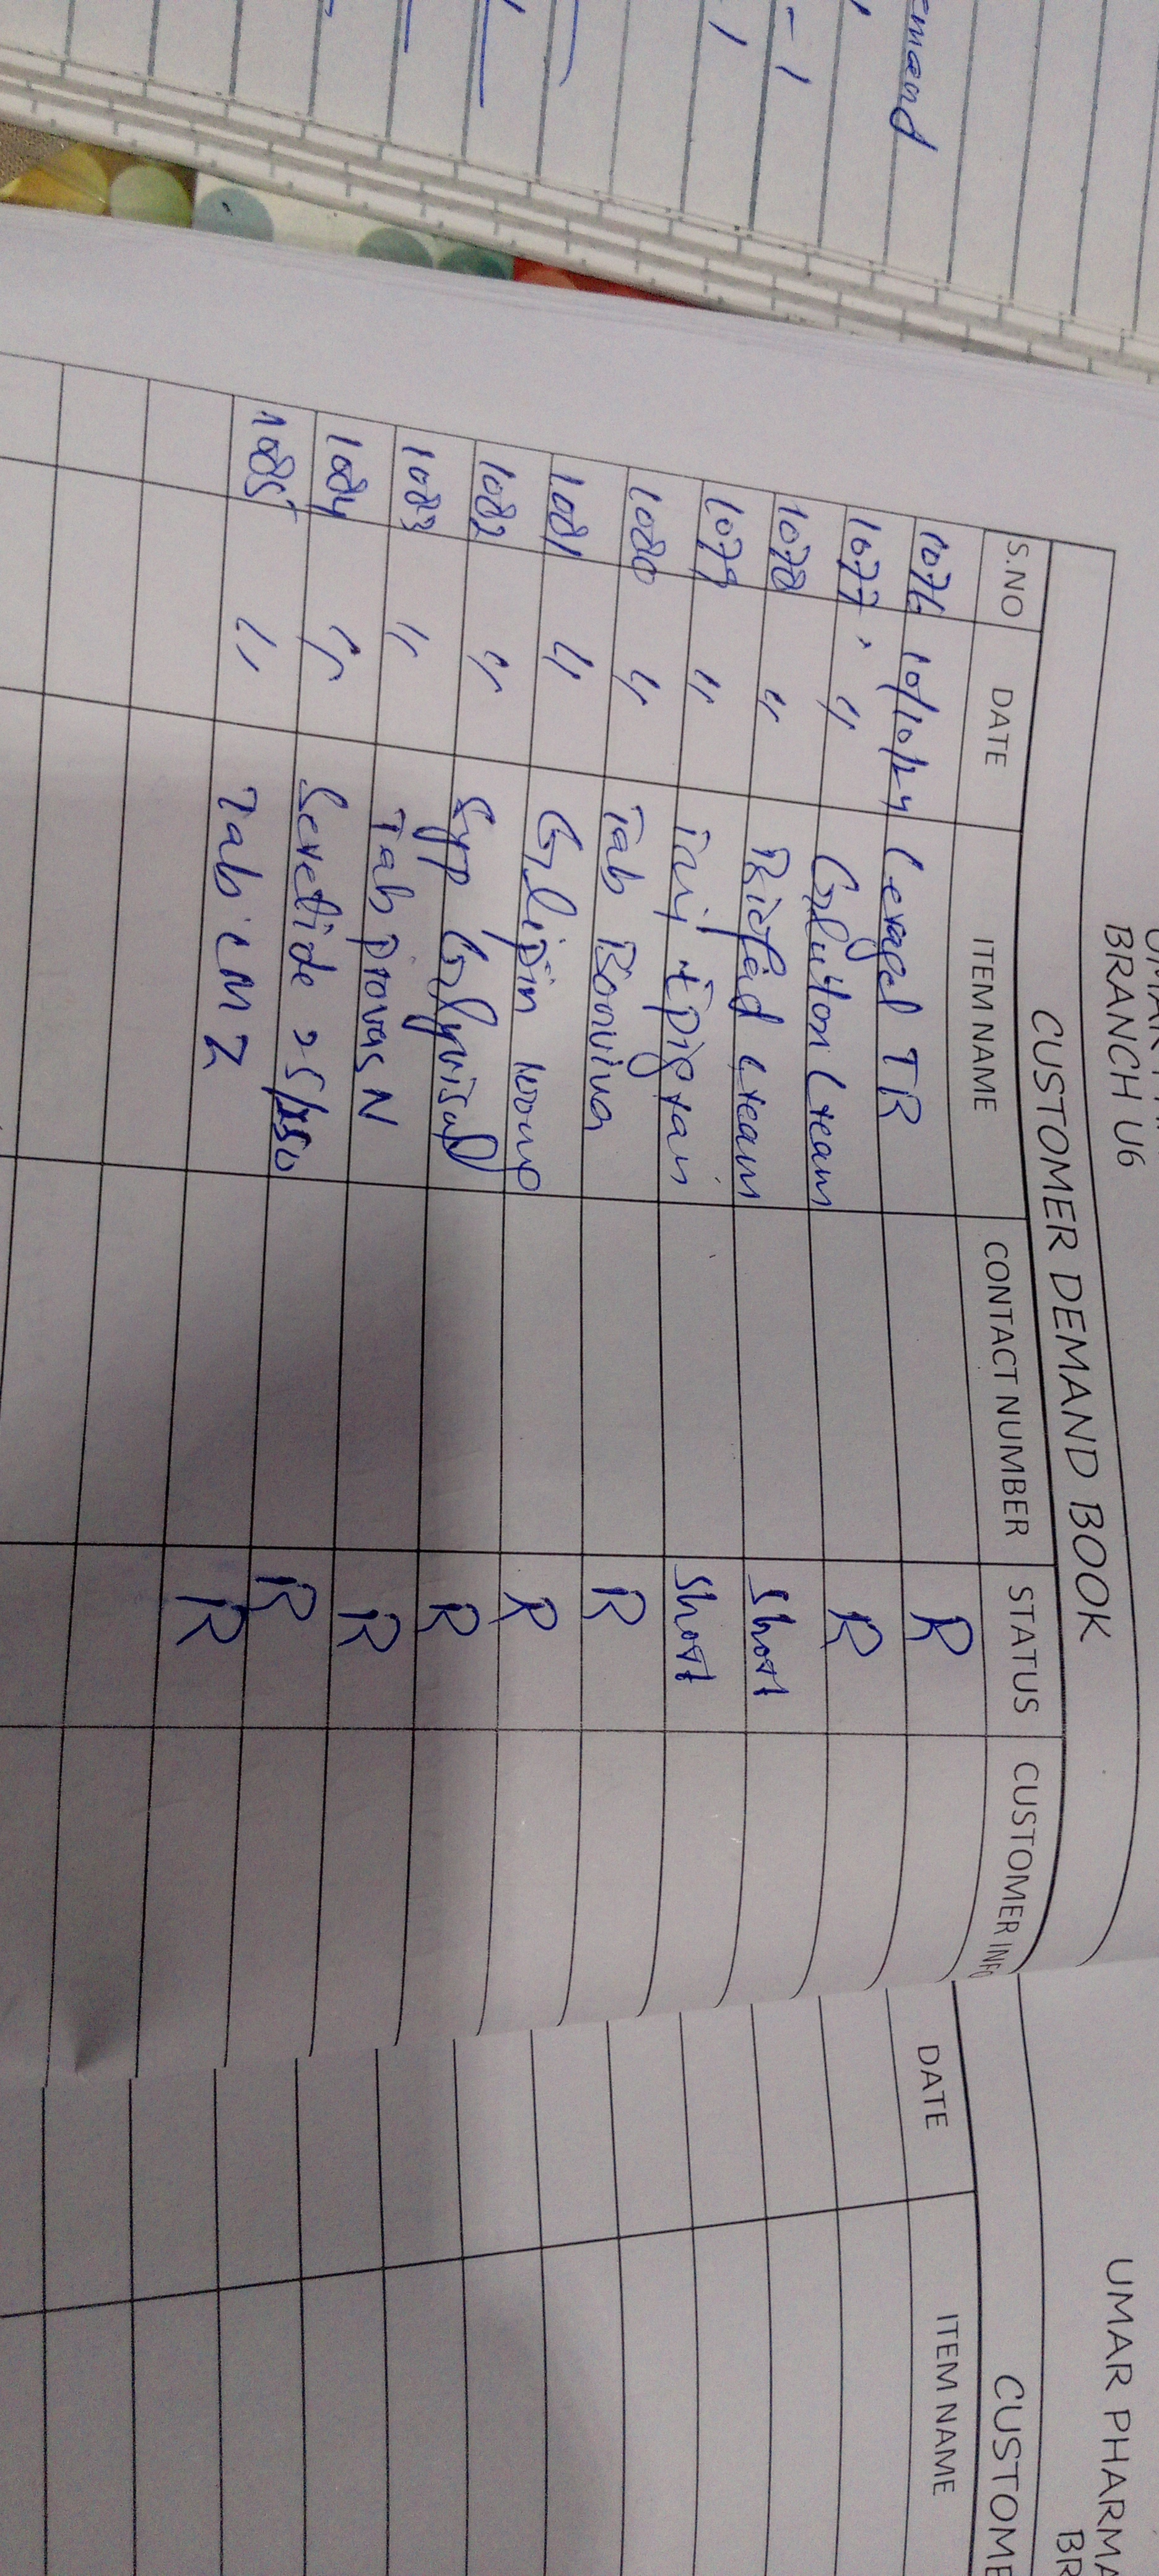 emand
BRANCH U6
CUSTOMER DEMAND BOOK
S.NO DATE ITEM NAME CONTACT NUMBER STATUS CUSTOMER INFO
1076 10/10/24 Cevagel TR R
1077 " Gluton Cream R
1078 " Cream Short
1079 " Inj Short
1080 " Tab Bonviva R
1081 " Glipin R
1082 " Syp R
1083 " Tab provas N R
1084 " Seretide 25/250 R
1085 " Tab CMZ R
UMAR PHARMA
BR
CUSTOME
DATE ITEM NAME